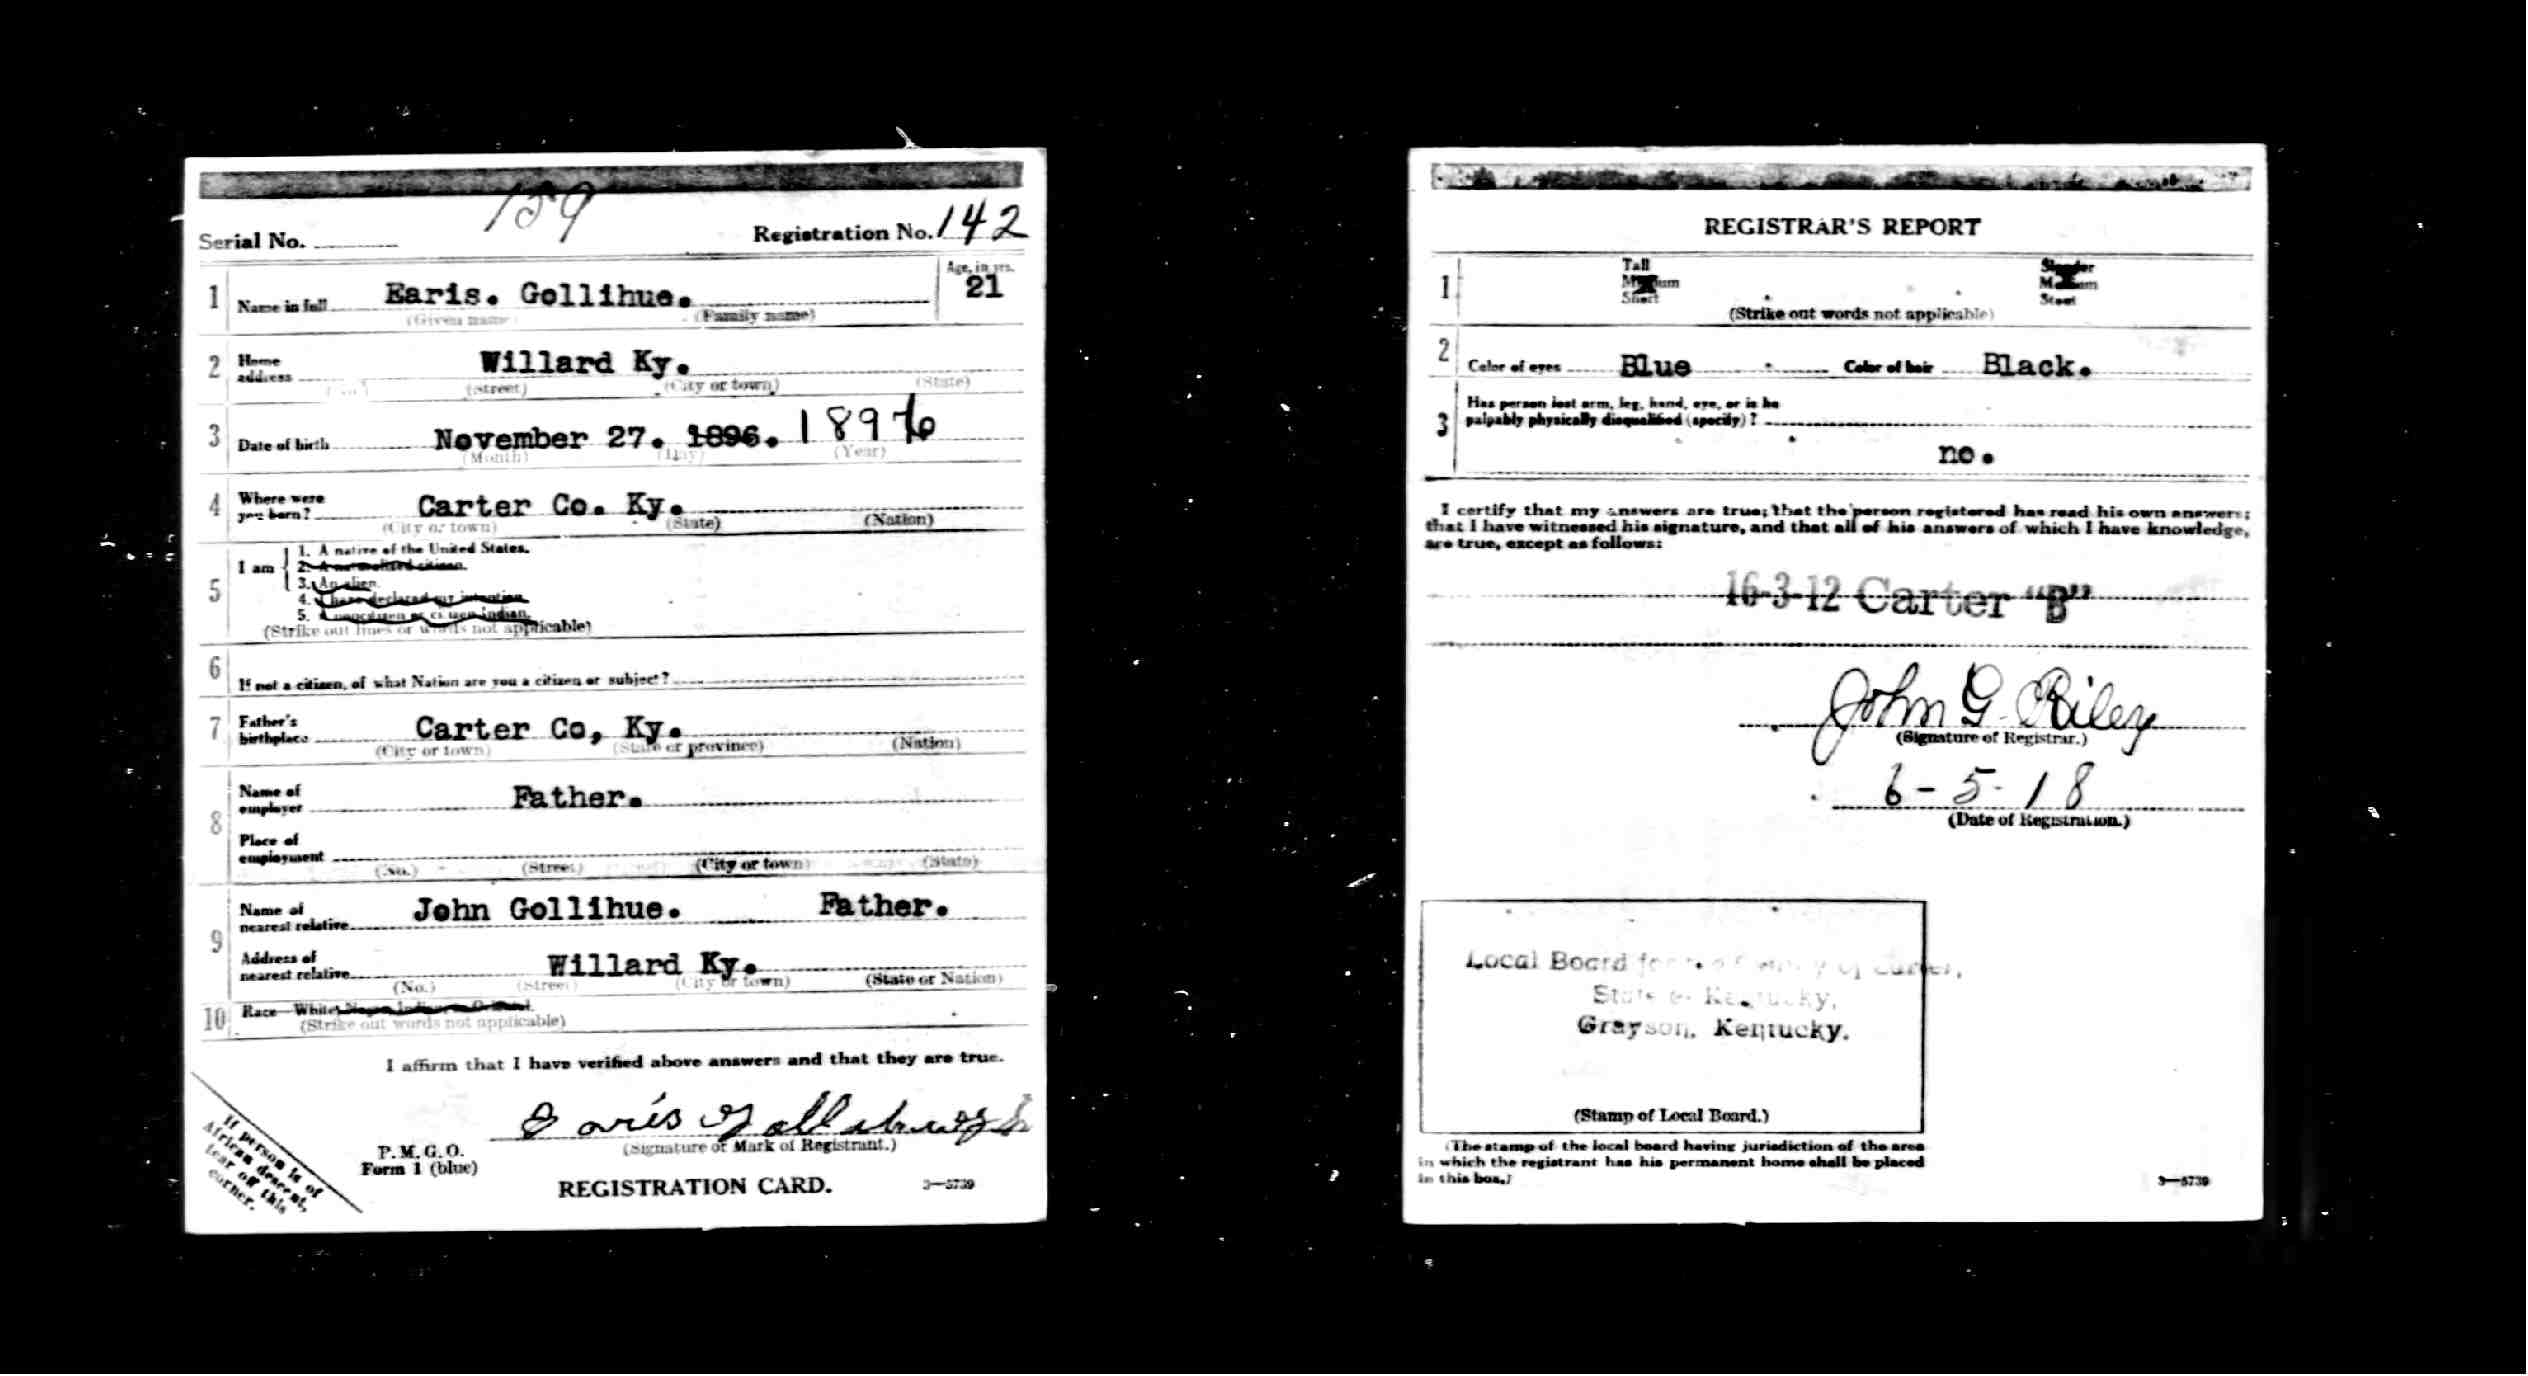 159
Serial No. Registration No. 142
1 Name in full Earis. Gollihue. Age, in yrs. 21
(Given name) (Family name)
2 Home address Willard Ky.
(No.) (Street) (City or town) (State)
3 Date of birth November 27. 1896. 1896
(Month) (Day) (Year)
4 Where were you born? Carter Co. Ky.
(City or town) (State) (Nation)
5 I am
1. A native of the United States.
2. A naturalized citizen.
3. An alien.
4. I have declared my intention.
5. A noncitizen or citizen Indian.
(Strike out lines or words not applicable)
6 If not a citizen, of what Nation are you a citizen or subject?
7 Father's birthplace Carter Co, Ky.
(City or town) (State or province) (Nation)
8 Name of employer Father.
Place of employment
(No.) (Street) (City or town) (State)
9 Name of nearest relative John Gollihue. Father.
Address of nearest relative Willard Ky.
(No.) (Street) (City or town) (State or Nation)
10 Race White, Negro, Indian, or Oriental.
(Strike out words not applicable)
I affirm that I have verified above answers and that they are true.
Earis
(Signature or Mark of Registrant.)
P. M. G. O.
Form 1 (blue)
REGISTRATION CARD. 3—5739
If person is of
African descent,
tear off this
corner.
REGISTRAR'S REPORT
1 Tall Slender
Medium Medium
Short Stout
(Strike out words not applicable)
2 Color of eyes Blue Color of hair Black.
3 Has person lost arm, leg, hand, eye, or is he
palpably physically disqualified (specify)?
no.
I certify that my answers are true; that the person registered has read his own answers;
that I have witnessed his signature, and that all of his answers of which I have knowledge,
are true, except as follows:
16-3-12 Carter "B"
John G. Riley
(Signature of Registrar.)
6-5-18
(Date of Registration.)
Local Board for County of Carter,
State of Kentucky,
Grayson, Kentucky.
(Stamp of Local Board.)
(The stamp of the local board having jurisdiction of the area
in which the registrant has his permanent home shall be placed
in this box.)
3—5739